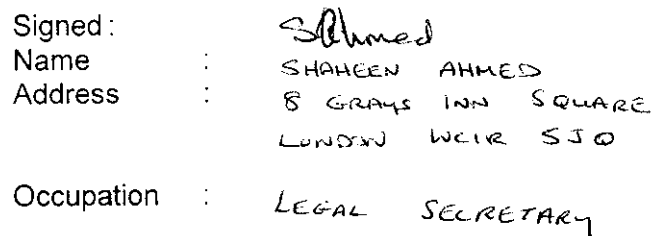 Signed : SAhmed
Name : SHAHEEN AHMED
Address : 8 GRAYS INN SQUARE
LONDON WC1R 5JQ
Occupation : LEGAL SECRETARY